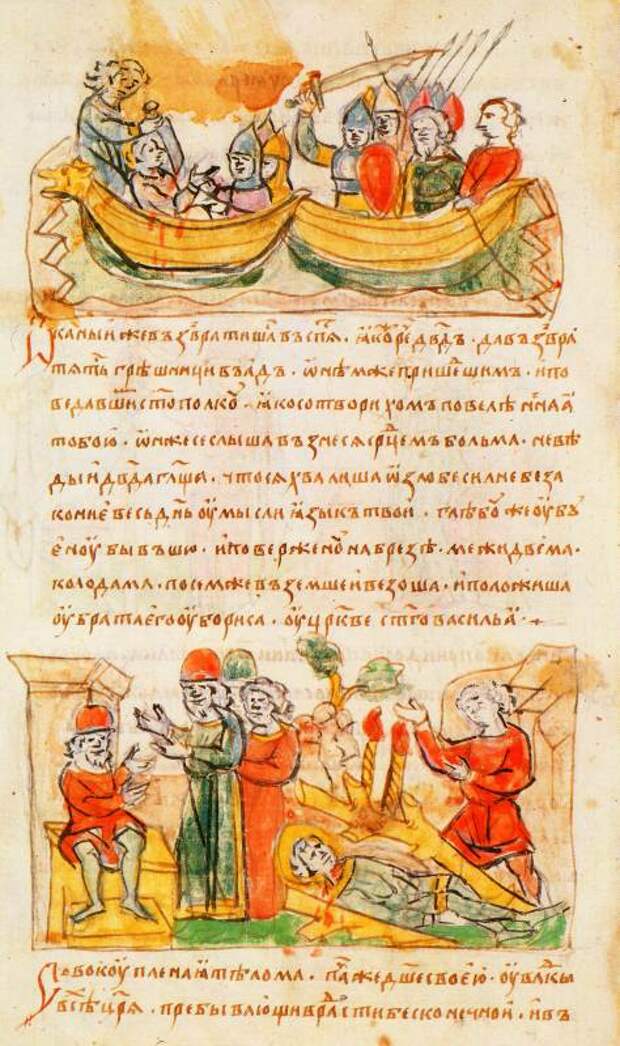 Ѡканый же възвратиша въспѧ · ꙗко рече дв҃дъ · да възвра
тѧть грѣшници въ адъ · ѡнѣм же пришедшим · и по
ведавши ст҃ополкоу · ꙗко сотворихомъ повелѣннаꙗ
тобою · ѡн же се слыша възнесѧ ср҃цемъ больма · не вѣ
ды и дв҃да гл҃ща · что сѧ хвалиша ѡ злобе силне беза
коние весь дн҃ь оумысли ꙗзыкъ твои · глѣбоу же оубь
еноу бывъшю · и поверженоу на брезѣ · межи двема ·
колодама · посем же въземше и везоша · и положиша
оу брата его оу бориса · оу цр҃кве ст҃го васильꙗ ·
Совокоуплена тѣлома · паче же дш҃ею · оу влⷣкы
всѣⷯ цр҃ѧ · пребывающи в радости бесконечной · и въ